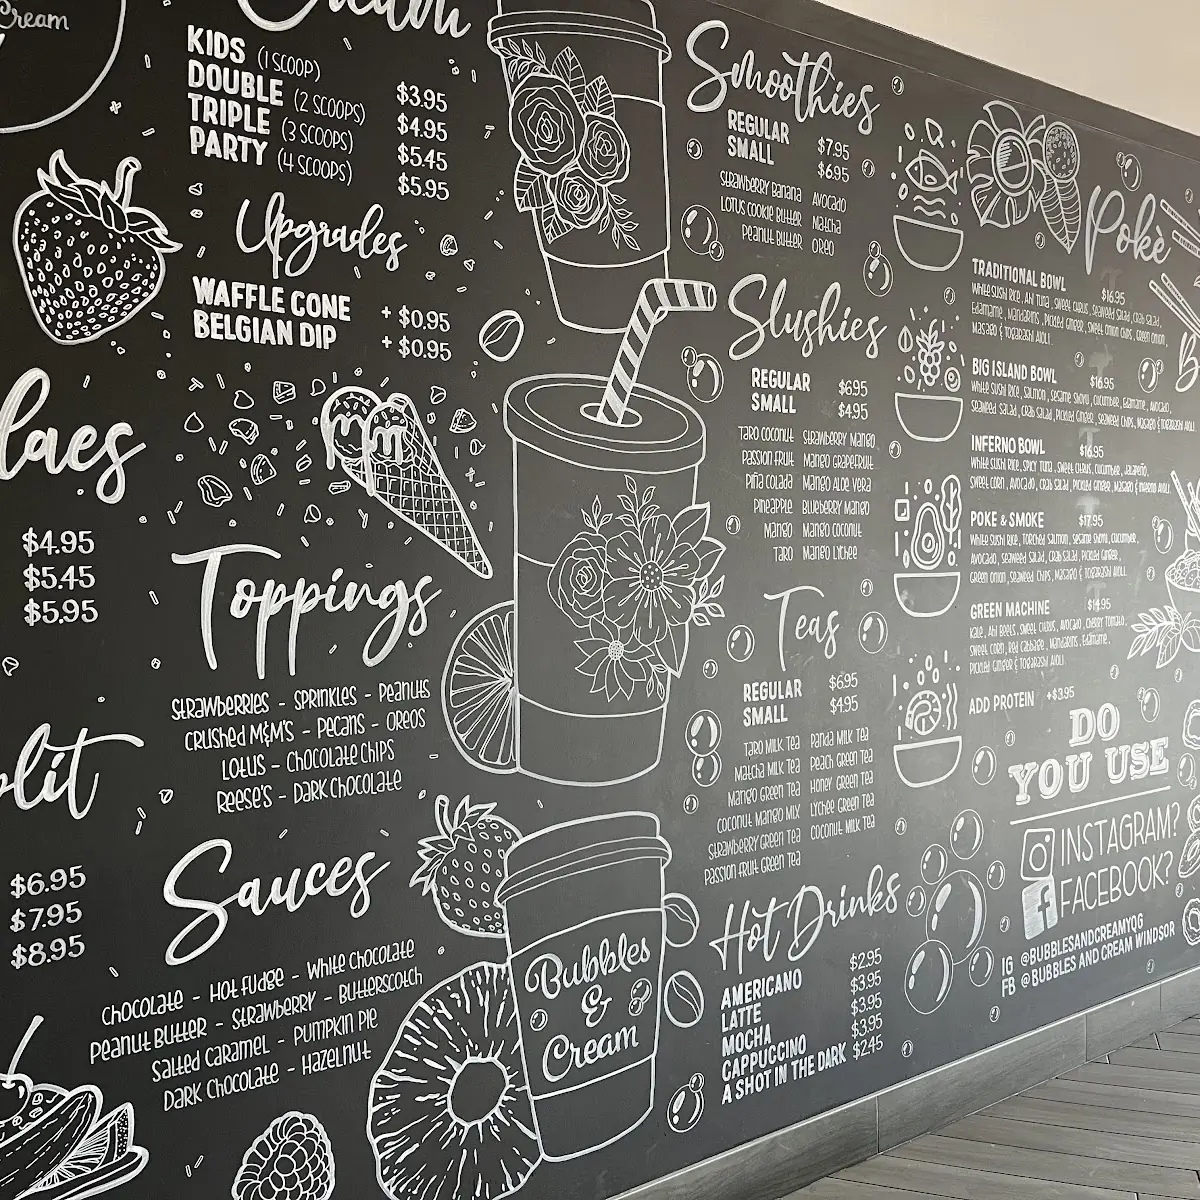 Cream
Cream
KIDS (1 SCOOP) $3.95
DOUBLE (2 SCOOPS) $4.95
TRIPLE (3 SCOOPS) $5.45
PARTY (4 SCOOPS) $5.95
Upgrades
WAFFLE CONE + $0.95
BELGIAN DIP + $0.95
$4.95
$5.45
$5.95
Toppings
STRAWBERRIES - SPRINKLES - PEANUTS
CRUSHED M&M'S - PECANS - OREOS
LOTUS - CHOCOLATE CHIPS
REESE'S - DARK CHOCOLATE
$6.95
$7.95
$8.95
Sauces
CHOCOLATE - HOT FUDGE - WHITE CHOCOLATE
PEANUT BUTTER - STRAWBERRY - BUTTERSCOTCH
SALTED CARAMEL - PUMPKIN PIE
DARK CHOCOLATE - HAZELNUT
Bubbles
&
Cream
Smoothies
REGULAR $7.95
SMALL $6.95
STRAWBERRY BANANA AVOCADO
LOTUS COOKIE BUTTER MATCHA
PEANUT BUTTER OREO
Slushies
REGULAR $6.95
SMALL $4.95
TARO COCONUT STRAWBERRY MANGO
PASSION FRUIT MANGO GRAPEFRUIT
PIÑA COLADA MANGO ALOE VERA
PINEAPPLE BLUEBERRY MANGO
MANGO MANGO COCONUT
TARO MANGO LYCHEE
Teas
REGULAR $6.95
SMALL $4.95
TARO MILK TEA PANDA MILK TEA
MATCHA MILK TEA PEACH GREEN TEA
MANGO GREEN TEA HONEY GREEN TEA
COCONUT MANGO MIX LYCHEE GREEN TEA
STRAWBERRY GREEN TEA COCONUT MILK TEA
PASSION FRUIT GREEN TEA
Hot Drinks
AMERICANO $2.95
LATTE $3.95
MOCHA $3.95
CAPPUCCINO $3.95
A SHOT IN THE DARK $2.45
Pokè
TRADITIONAL BOWL $16.95
WHITE SUSHI RICE, AHI TUNA, SWEET CITRUS, SEAWEED SALAD, CRAB SALAD,
EDAMAME, MANDARINS, PICKLED GINGER, SWEET ONION CHIPS, GREEN ONION,
MASAGO & TOGARASHI AIOLI.
BIG ISLAND BOWL $16.95
WHITE SUSHI RICE, SALMON, SESAME SHOYU, CUCUMBER, EDAMAME, AVOCADO,
SEAWEED SALAD, CRAB SALAD, PICKLED GINGER, SEAWEED CHIPS, MASAGO & TOGARASHI AIOLI.
INFERNO BOWL $16.95
WHITE SUSHI RICE, SPICY TUNA, SWEET CITRUS, CUCUMBER, JALAPEÑO,
SWEET CORN, AVOCADO, CRAB SALAD, PICKLED GINGER, MASAGO & INFERNO AIOLI.
POKE & SMOKE $17.95
WHITE SUSHI RICE, TORCHED SALMON, SESAME SHOYU, CUCUMBER,
AVOCADO, SEAWEED SALAD, CRAB SALAD, PICKLED GINGER,
GREEN ONION, SEAWEED CHIPS, MASAGO & TOGARASHI AIOLI.
GREEN MACHINE $14.95
KALE, AHI BEETS, SWEET CITRUS, AVOCADO, CHERRY TOMATO,
SWEET CORN, RED CABBAGE, MANDARINS, EDAMAME,
PICKLED GINGER & TOGARASHI AIOLI
ADD PROTEIN +$3.95
DO
YOU USE
INSTAGRAM?
FACEBOOK?
IG @BUBBLESANDCREAMYQG
FB @BUBBLES AND CREAM WINDSOR